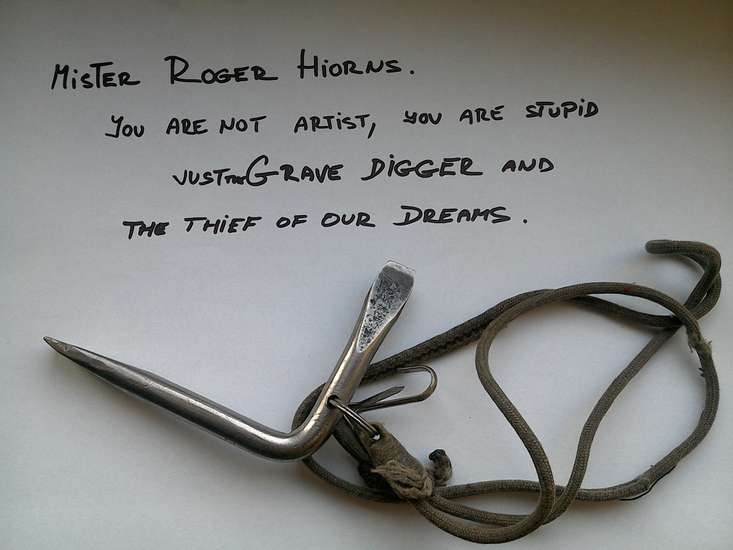 MISTER ROGER HIORNS.
YOU ARE NOT ARTIST, YOU ARE STUPID
JUST THE GRAVE DIGGER AND
THE THIEF OF OUR DREAMS.